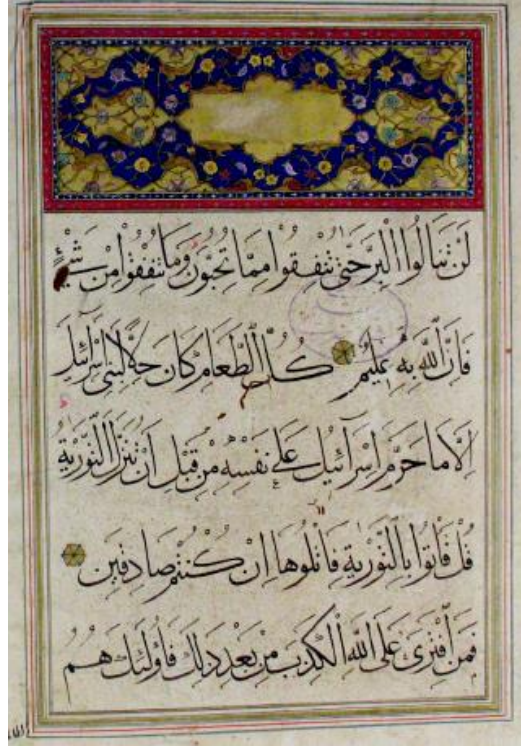 لَنْ تَنَالُوا الْبِرَّ حَتّىٰ تُنْفِقُوا مِمَّا تُحِبُّونَ وَمَا تُنْفِقُوا مِنْ شَيْءٍ
فَاِنَّ اللّٰهَ بِهٖ عَلِيمٌ كُلُّ الطَّعَامِ كَانَ حِلًّا لِبَنِي اِسْرَائِيلَ
اِلَّا مَا حَرَّمَ اِسْرَآئِيلُ عَلٰى نَفْسِهٖ مِنْ قَبْلِ اَنْ تُنَزَّلَ التَّوْرٰيةُ
قُلْ فَأْتُوا بِالتَّوْرٰيةِ فَاتْلُوهَا اِنْ كُنْتُمْ صَادِقِينَ
فَمَنِ افْتَرٰى عَلَى اللّٰهِ الْكَذِبَ مِنْ بَعْدِ ذٰلِكَ فَاُولٰئِكَ هُمُ